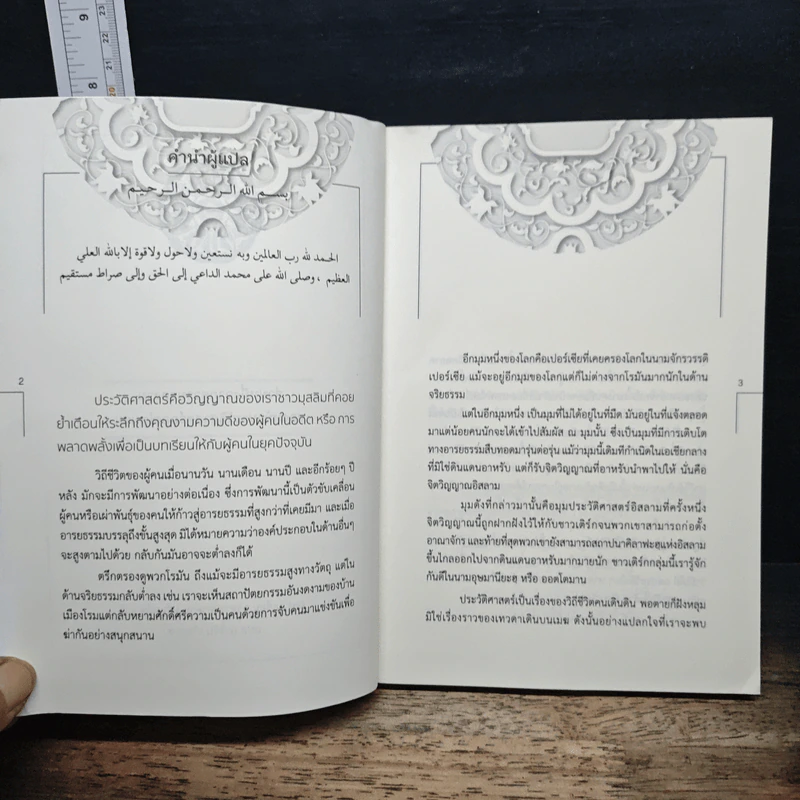 9
23
22
21
8
20
คำนำผู้แปล
بسم الله الرحمن الرحيم
الحمد لله رب العالمين وبه نستعين ولاحول ولاقوة إلابالله العلي
العظيم ، وصلى الله على محمد الداعي إلى الحق وإلى صراط مستقيم
2
ประวัติศาสตร์คือวิญญาณของเราชาวมุสลิมที่คอย
ย้ำเตือนให้ระลึกถึงคุณงามความดีของผู้คนในอดีต หรือ การ
พลาดพลั้งเพื่อเป็นบทเรียนให้กับผู้คนในยุคปัจจุบัน
วิถีชีวิตของผู้คนเมื่อนานวัน นานเดือน นานปี และอีกร้อยๆ ปี
หลัง มักจะมีการพัฒนาอย่างต่อเนื่อง ซึ่งการพัฒนานี้เป็นตัวขับเคลื่อน
ผู้คนหรือเผ่าพันธุ์ของคนให้ก้าวสู่อารยธรรมที่สูงกว่าที่เคยมีมา และเมื่อ
อารยธรรมบรรลุถึงขั้นสูงสุด มิได้หมายความว่าองค์ประกอบในด้านอื่นๆ
จะสูงตามไปด้วย กลับกันมันอาจจะต่ำลงก็ได้
ตรึกตรองดูพวกโรมัน ถึงแม้จะมีอารยธรรมสูงทางวัตถุ แต่ใน
ด้านจริยธรรมกลับต่ำลง เช่น เราจะเห็นสถาปัตยกรรมอันงดงามของบ้าน
เมืองโรมแต่กลับหยามศักดิ์ศรีความเป็นคนด้วยการจับคนมาแข่งขันเพื่อ
ฆ่ากันอย่างสนุกสนาน
อีกมุมหนึ่งของโลกคือเปอร์เซียที่เคยครองโลกในนามจักรวรรดิ
เปอร์เซีย แม้จะอยู่อีกมุมของโลกแต่ก็ไม่ต่างจากโรมันมากนักในด้าน
จริยธรรม
3
แต่ในอีกมุมหนึ่ง เป็นมุมที่ไม่ได้อยู่ในที่มืด มันอยู่ในที่แจ้งตลอด
มาแต่น้อยคนนักจะได้เข้าไปสัมผัส ณ มุมนั้น ซึ่งเป็นมุมที่มีการเติบโต
ทางอารยธรรมสืบทอดมารุ่นต่อรุ่น แม้ว่ามุมนี้เดิมทีกำเนิดในเอเซียกลาง
ที่มิใช่ดินแดนอาหรับ แต่ก็รับจิตวิญญาณที่อาหรับนำพาไปให้ นั่นคือ
จิตวิญญาณอิสลาม
มุมดังที่กล่าวมานั้นคือมุมประวัติศาสตร์อิสลามที่ครั้งหนึ่ง
จิตวิญญาณนี้ถูกฝากฝังไว้ให้กับชาวเติร์กจนพวกเขาสามารถก่อตั้ง
อาณาจักร และท้ายที่สุดพวกเขายังสามารถสถาปนาคิลาฟะฮฺแห่งอิสลาม
ขึ้นไกลออกไปจากดินแดนอาหรับมากมายนัก ชาวเติร์กกลุ่มนี้เรารู้จัก
กันดีในนามอุษมานียะฮฺ หรือ ออตโตมาน
ประวัติศาสตร์เป็นเรื่องของวิถีชีวิตคนเดินดิน พอตายก็ฝังหลุม
มิใช่เรื่องราวของเทวดาเดินบนเมฆ ดังนั้นอย่างแปลกใจที่เราจะพบ